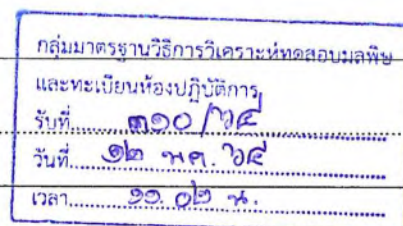 กลุ่มมาตรฐานวิธีการวิเคราะห์ทดสอบมลพิษ
และทะเบียนห้องปฏิบัติการ
รับที่ ๓๑๐/๖๔
วันที่ ๑๒ พ.ค. ๖๔
เวลา ๑๑.๐๒ น.